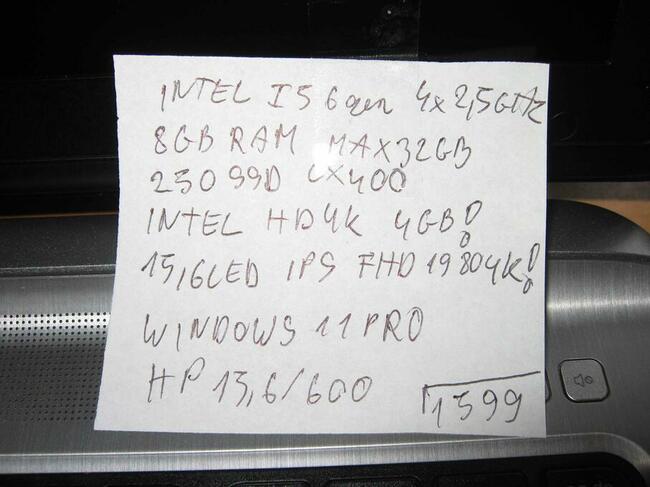 INTEL I5 6gen 4x2,5GHz
8GB RAM MAX32GB
250 SSD LX400
INTEL HD4K 4GB!
15,6LED IPS FHD 19804K!
WINDOWS 11 PRO
HP 15,6/600
1599